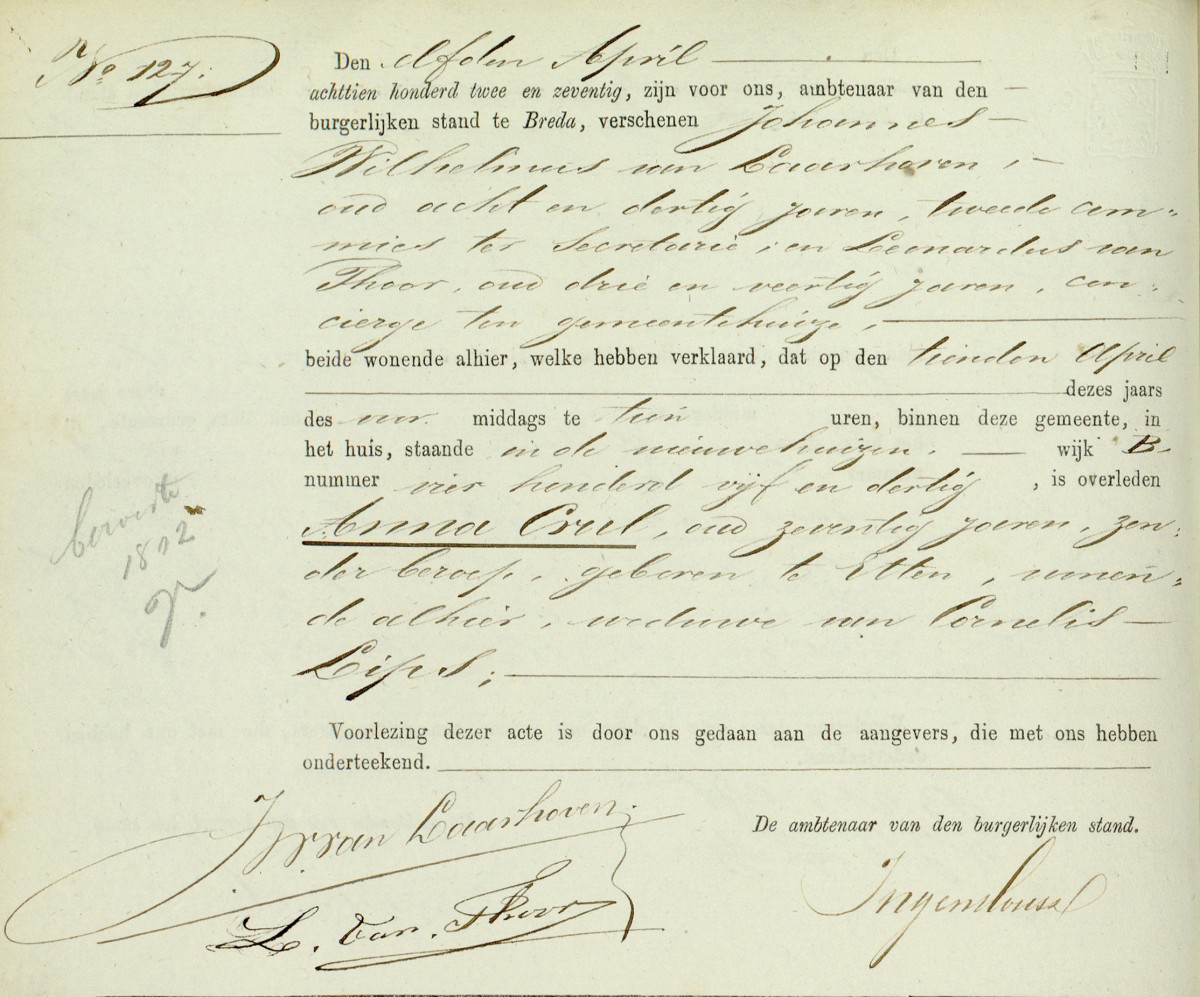 No 127.
Den elfden April
achttien honderd twee en zeventig, zijn voor ons, ambtenaar van den
burgerlijken stand te Breda, verschenen Johannes
Wilhelmus van Laarhoven,
oud acht en dertig jaren, tweede com=
mies ter Secretarie; en Leonardus van
Thoor, oud drie en veertig jaren, con=
cierge ten gemeentehuize,
beide wonende alhier, welke hebben verklaard, dat op den tienden April
dezes jaars
des voor middags te tien uren, binnen deze gemeente, in
het huis, staande in de nieuwehuizen. wijk B.
nummer vier honderd vijf en dertig, is overleden
Anna Crul, oud zeventig jaren, zon=
der beroep, geboren te Etten, wonen=
de alhier, weduwe van Cornelis
Lips;
Voorlezing dezer acte is door ons gedaan aan de aangevers, die met ons hebben
onderteekend.
JW van Laarhoven
De ambtenaar van den burgerlijken stand.
L. van Thoor
Ingenhousz
1812